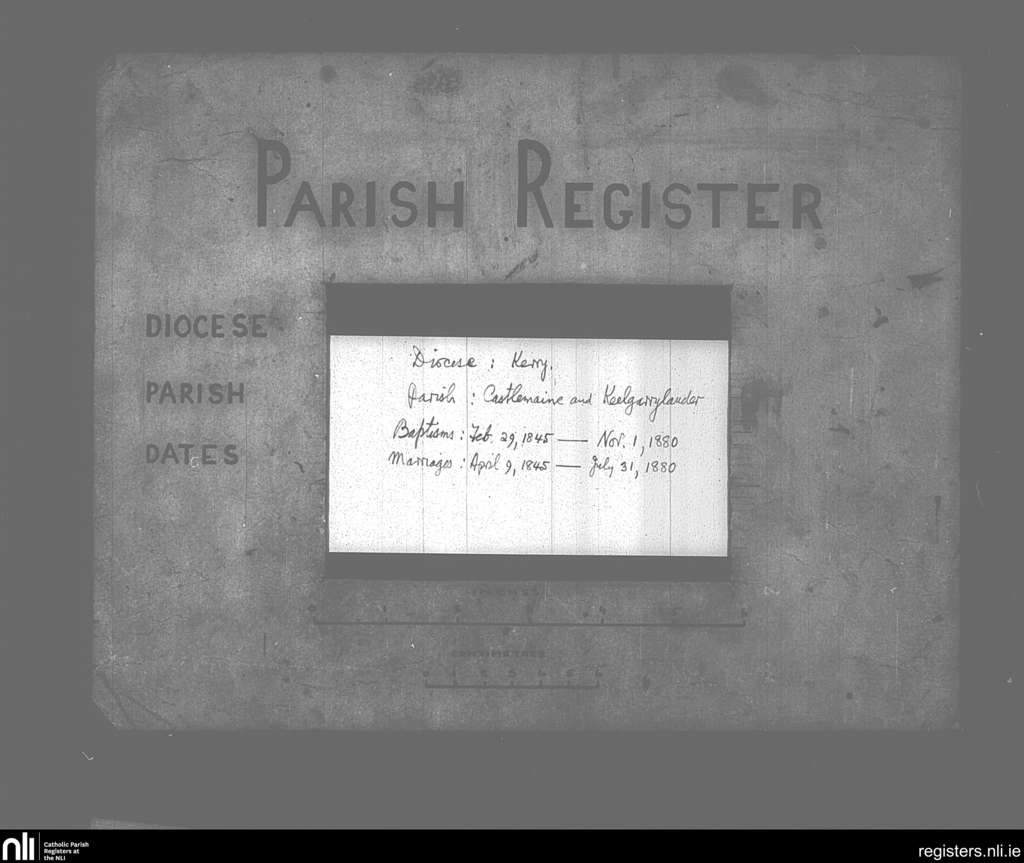 PARISH REGISTER
DIOCESE
PARISH
DATES
Diocese : Kerry.
Parish : Castlemaine and Keelgarrylander
Baptisms : Feb. 29, 1845 — Nov. 1, 1880
Marriages : April 9, 1845 — July 31, 1880
INCHES
CENTIMETRES
nli
Catholic Parish
Registers at
the NLI
registers.nli.ie